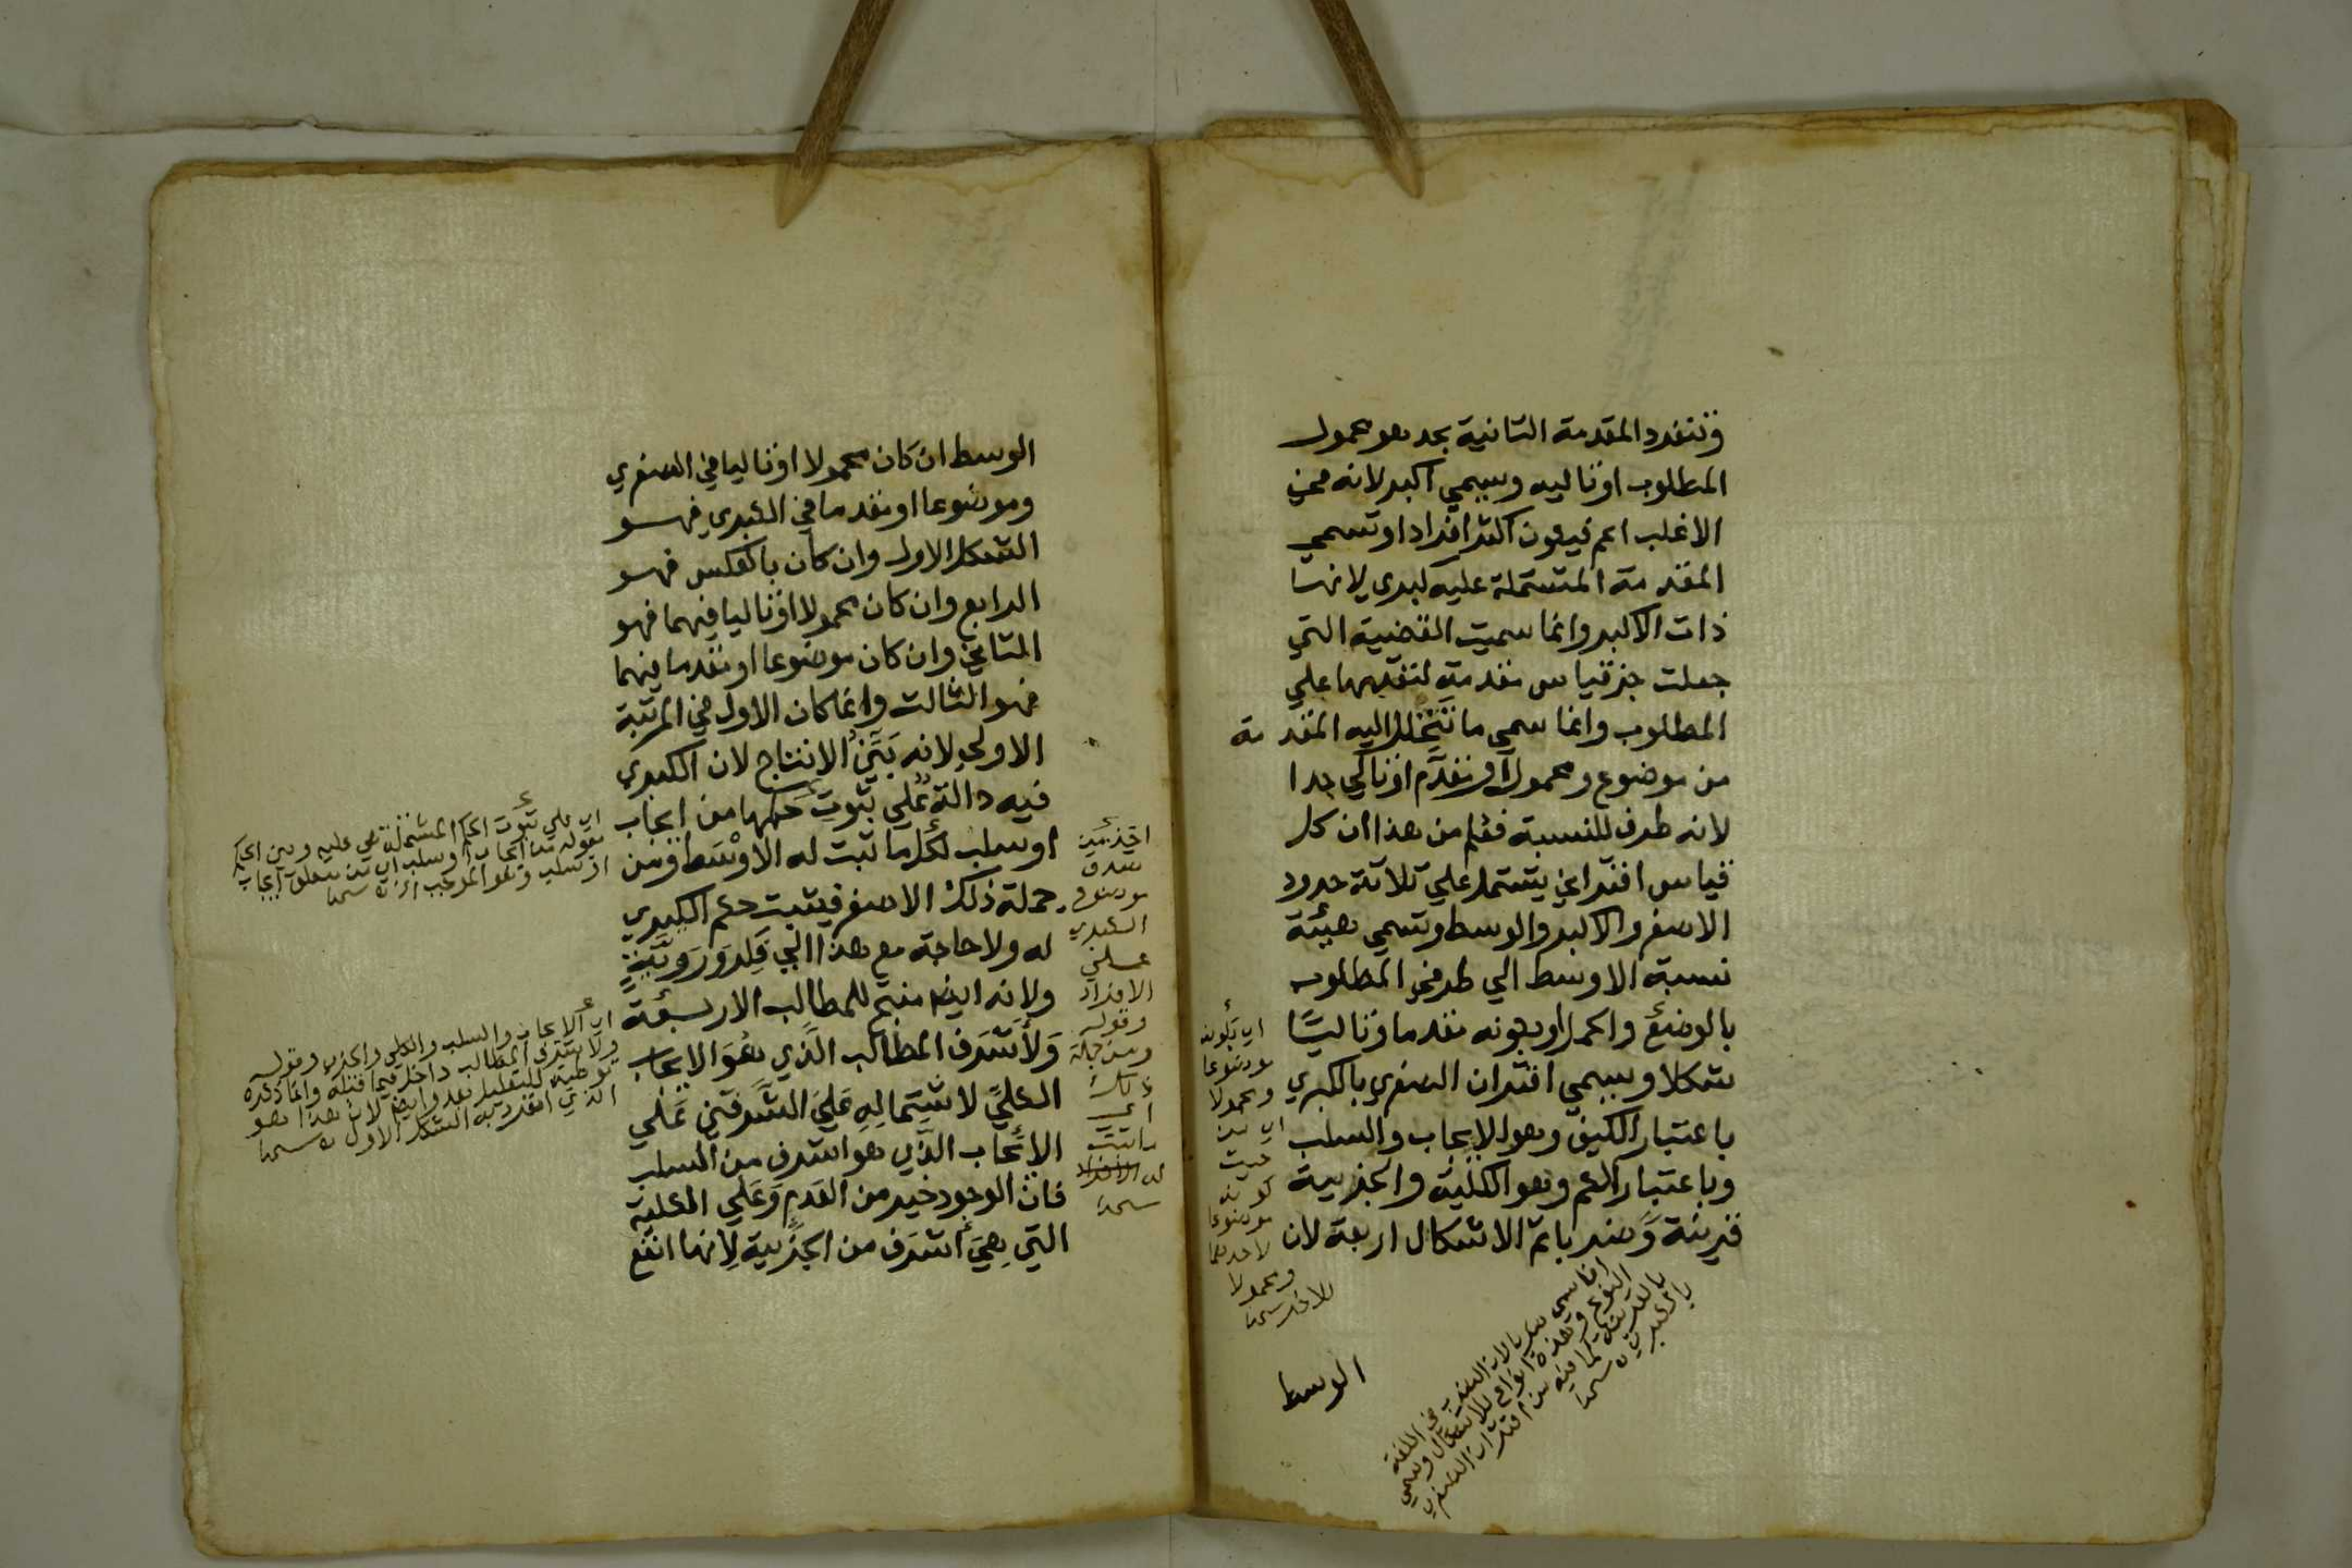 وتنفرد المقدمة الثانية بحد هو محمول
المطلوب او تاليه ويسمي اكبر لانه في
الاغلب اعم فيكون اكثر افرادا وتسمي
المقدمة المشتملة عليه كبري لانها
ذات الاكبر وانما سميت القضية التي
جعلت جزقياس مقدمة لتقدمها علي
المطلوب وانما سمي ما تنحل اليه المقدمة
من موضوع ومحمول او مقدم او تالي حدا
لانه طرف للنسبة فعلم من هذا ان كل
قياس اقتراني يشتمل علي ثلاثة حدود
الاصغر والاكبر والوسط وتسمي هيئة
نسبة الاوسط الي طرفي المطلوب
بالوضع والحمل او بكونه مقدما وتاليا
شكلا ويسمي اقتران الصغري بالكبري
باعتبار الكيف وهو الايجاب والسلب
وباعتبار الكم وهو الكلية والجزيية
قرينة وضربا ثم الاشكال اربعة لان
اي بكونه
موضوعا
ومحمولا
اي من
حيث
كونه
موضوعا
لاحدهما
ومحمولا
للاخر
انما سمي ضربا لان الضرب في اللغة
النوع وهذه انواع للاشكال وسمي
بالقرينة لما فيه من اقتران الصغري
بالكبري
الوسط
الوسط ان كان محمولا او تاليا في الصغري
وموضوعا او مقدما في الكبري فهو
الشكل الاول وان كان بالعكس فهو
الرابع وان كان محمولا او تاليا فيهما فهو
الثاني وان كان موضوعا او مقدما فيهما
فهو الثالث وانما كان الاول في المرتبة
الاولي لانه بَيِّنُ الانتاج لان الكبري
فيه دالة علي ثبوت حكمها من ايجاب
او سلب لكل ما ثبت له الاوسط ومن
جملة ذلك الاصغر فيثبت حكم الكبري
له ولا حاجة مع هذا الي فكر وروية
ولانه ايضا منتج للمطالب الاربعة
ولاشرف المطالب الذي هو الايجاب
الكلي لاشتماله علي الشرفين علي
الايجاب الذي هو اشرف من السلب
فان الوجود خير من العدم وعلي الكلية
التي هي اشرف من الجزيية لانها انفع
صدق
موضوع
الكبري
علي
الافراد
وقوله
ومن جملة
ذلك
اي
ما ثبت
له
اي علي ثبوت الحكم المشتملة هي عليه وبين الحكم
بقوله من ايجاب او سلب
اي الايجاب والسلب والكلي والجزي وقوله
ولاشرف المطالب داخل فيما قبله وانما ذكره
توطية للتعليل بعد وايضا لان هذا هو
الذي انفرد به الشكل الاول